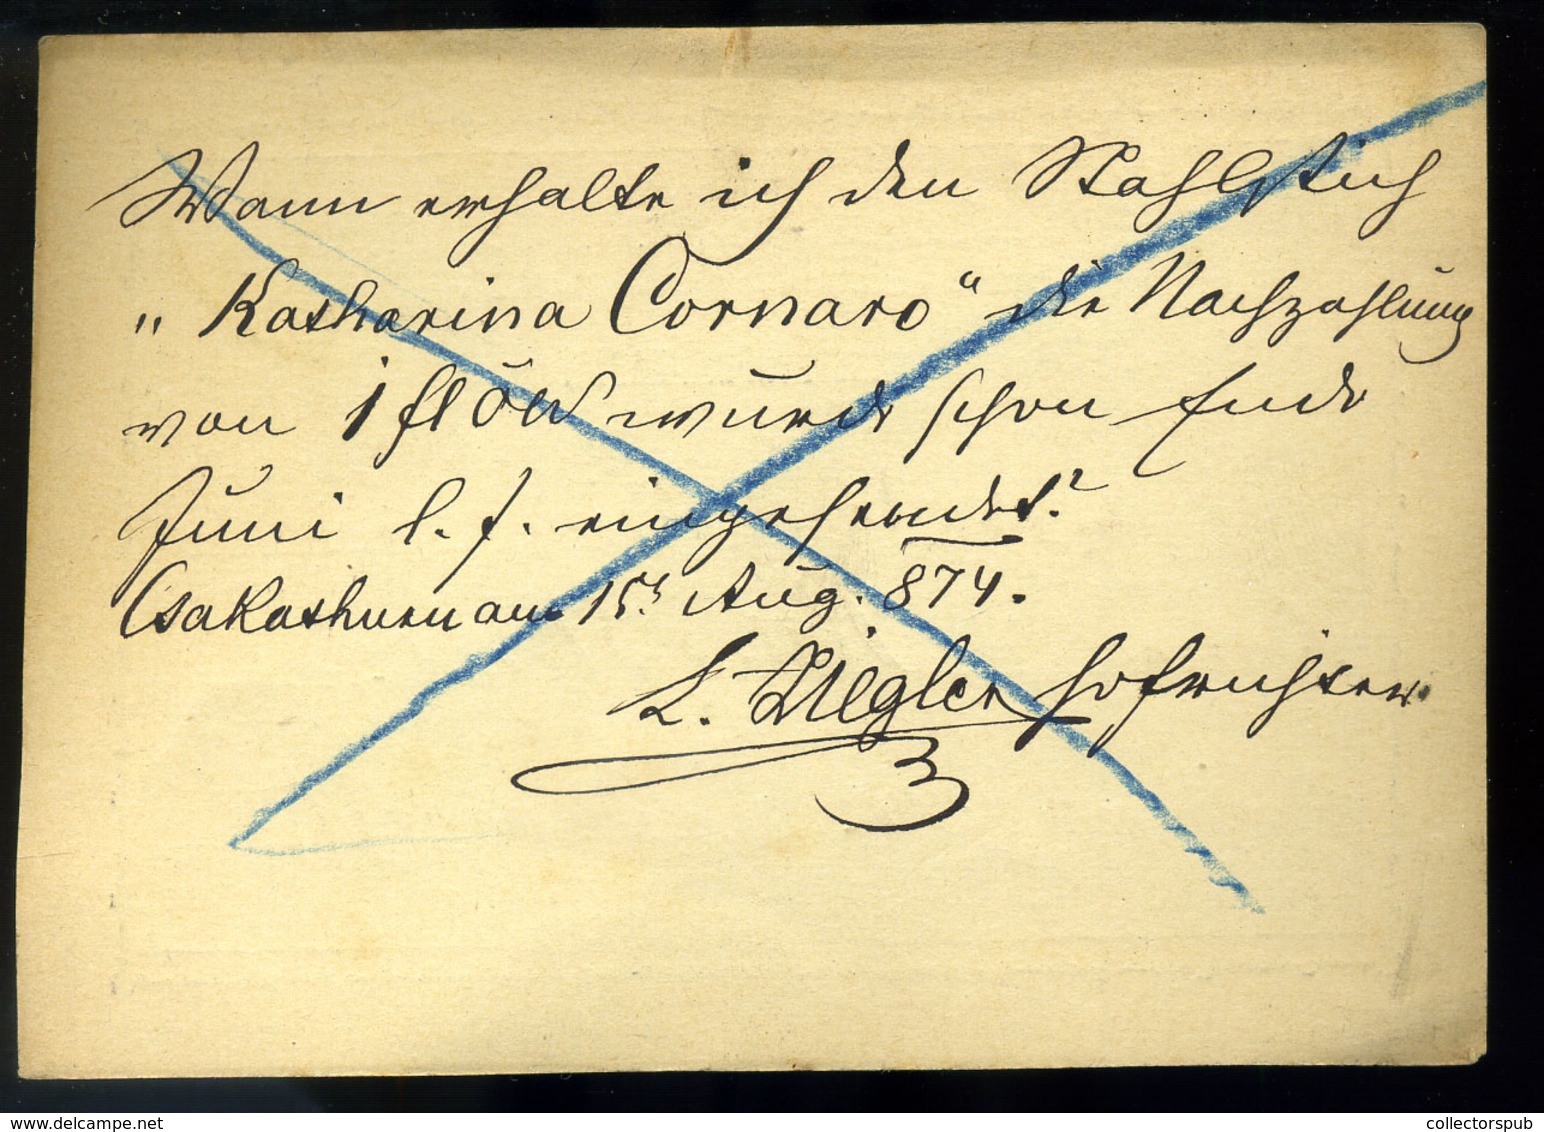 Wann erhalte ich den Stahlstich
„Katharina Cornaro“ die Nachzahlung
von 1 fl öW wurde schon Ende
Juni l. J. eingesendet?
Csakathurn am 15t Aug. 874.
L. Ziegler Hofrichter
www.delcampe.net
collectorspub